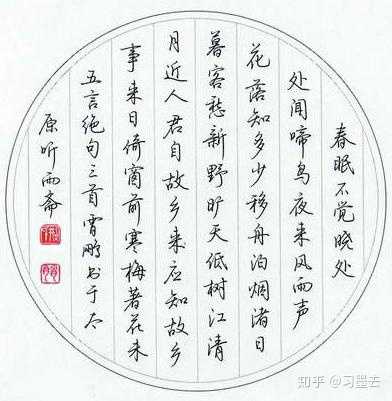 春眠不觉晓处
处闻啼鸟夜来风雨声
花落知多少移舟泊烟渚日
暮客愁新野旷天低树江清
月近人君自故乡来应知故乡
事来日倚窗前寒梅著花未
五言绝句三首霄鹏书于太
原听雨斋
知乎 @习墨去